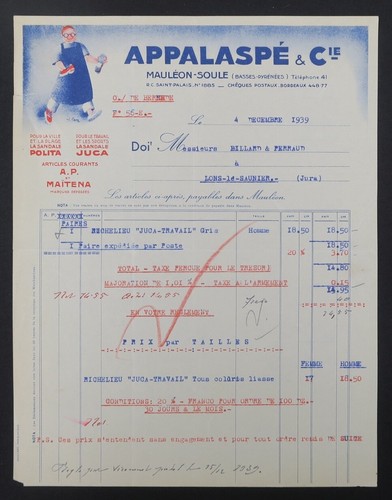 APPALASPÉ & CIE
MAULÉON-SOULE (BASSES-PYRÉNÉES) Téléphone 41
R.C. SAINT-PALAIS, N° 1885 — CHÈQUES POSTAUX, BORDEAUX 448 77
Le 4 DECEMBRE 1939
POUR LA VILLE ET LA PLAGE LA SANDALE POLITA
POUR LE TRAVAIL ET LES SPORTS LA SANDALE JUCA
Doit Messieurs BILLARD & PERRAUD
à
ARTICLES COURANTS
A.P.
ET
MAÏTENA
MARQUES DÉPOSÉES
LONS-le-SAUNIER.- (Jura)
Les articles ci-après, payables dans Mauléon
NOTA
A.P.
PAIRES
1 RICHELIEU "JUCA-TRAVAIL" Gris Homme 18,50 18,50
1 Paire expédiée par Poste 18,50
20 % 3,70
TOTAL - TAXE PERCUE POUR LE TRESOR) 14,80
MAJORATION DE 1,01 % - TAXE A L'ARMEMENT 0,15
14,95
EN VOTRE REGLEMENT
PRIX par TAILLES
FEMME HOMME
RICHELIEU "JUCA-TRAVAIL" Tous coloris liasse 17 18,50
CONDITIONS: 20 % - FRANCO POUR ORDRE DE 100 DE.-
30 JOURS & LE MOIS.-
P.S. Ces prix s'entendent sans engagement et pour tout ordre remis DE SUITE